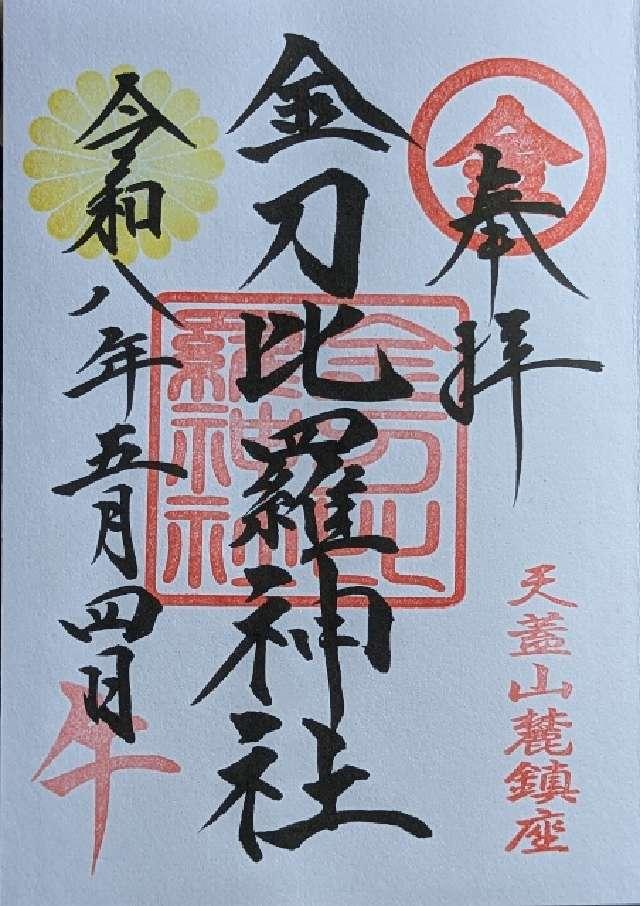 奉拝
金
天蓋山麓鎮座
金刀比羅神社
金刀比羅神社
令和八年五月四日
午